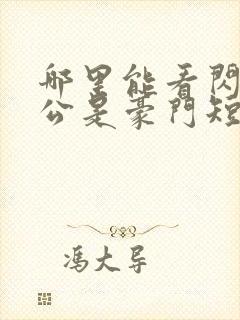 哪里能看閃
公是豪門短
馮大导